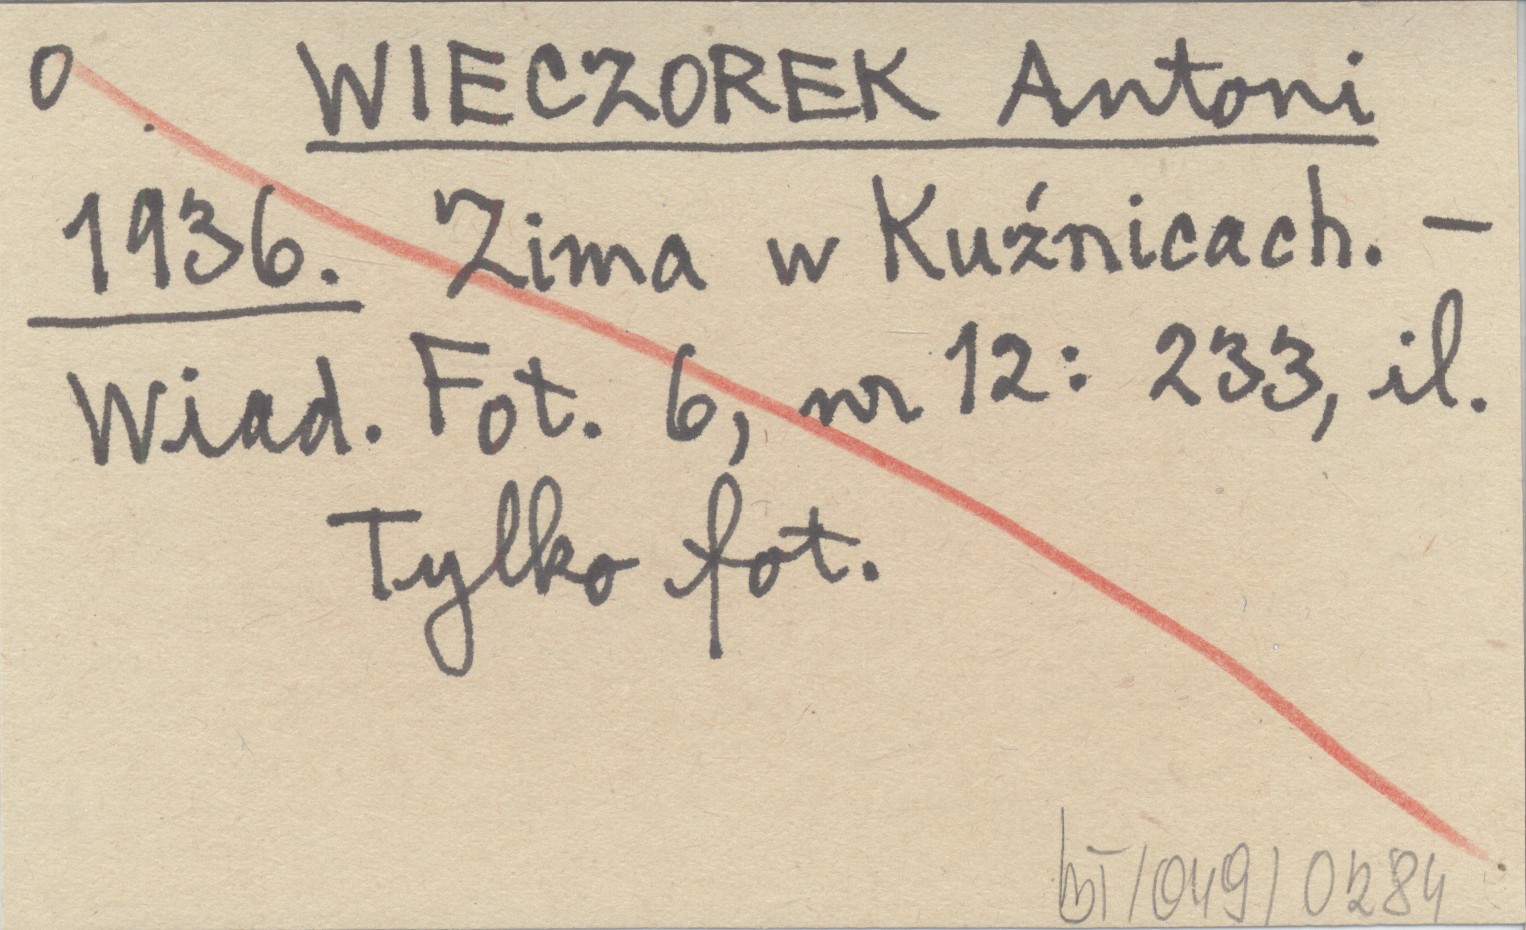 0 WIECZOREK Antoni
1936. Zima w Kuźnicach. –
Wiad. Fot. 6, nr 12: 233, il.
Tylko fot.
bT/049/0284